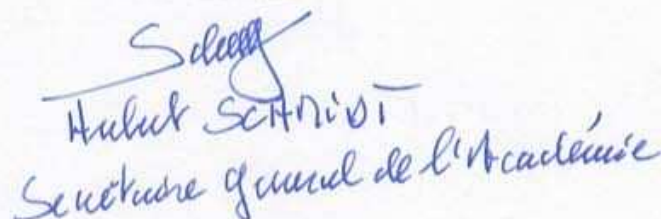 Hubert SCHMIDT
Secrétaire général de l'Académie